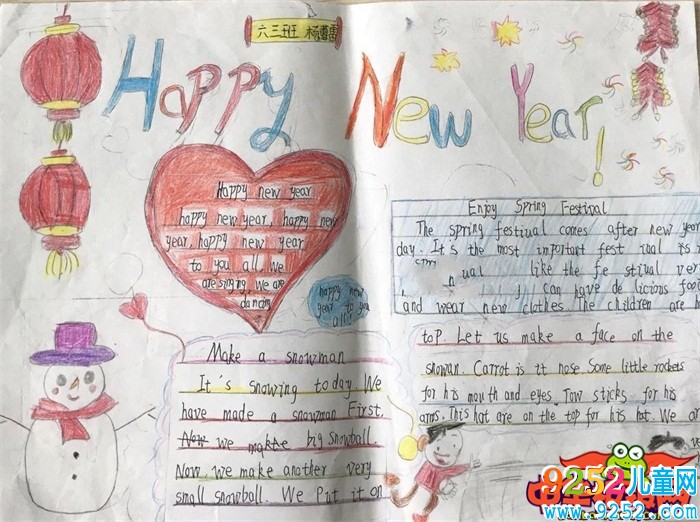 六三班 杨
Happy New Year!
Happy new year
happy new year, happy new
year, happy new year
to you all. We
are singing, We are
dancing
happy new
year to you
all!
Enjoy Spring Festival
The spring festival comes after new year
day. It's the most important fest ival is
like the fe stival very
can have de licious food
and wear new clothes. The children are
Make a snowman
It's snowing today. We
have made a snowman First.
Now we make big snowball.
Now we make another very
small snowball. We Put it on
top. Let us make a face on the
snowan. Carrot is it nose. Some little rockets
for his mouth and eyes. Tow sticks for his
arms. This hat are on the top for his hat. We
9252儿童网
www.9252.com